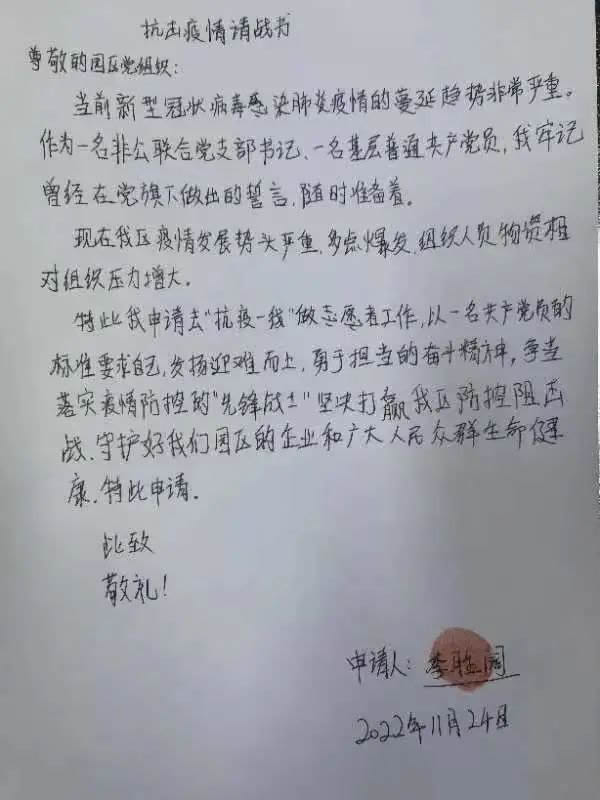 抗击疫情请战书
尊敬的园区党组织:
当前新型冠状病毒感染肺炎疫情的蔓延趋势非常严重。
作为一名非公联合党支部书记、一名基层普通共产党员,我牢记
曾经在党旗下做出的誓言,随时准备着。
现在我区疫情发展势头严重,多点爆发,组织人员物资相
对组织压力增大。
特此我申请去“抗疫一线”做志愿者工作,以一名共产党员的
标准要求自己,发扬迎难而上,勇于担当的奋斗精神,争当
落实疫情防控的“先锋战士”坚决打赢我区防控阻击
战、守护好我们园区的企业和广大人民众群生命健
康.特此申请。
此致
敬礼!
申请人:李
2022年11月24日